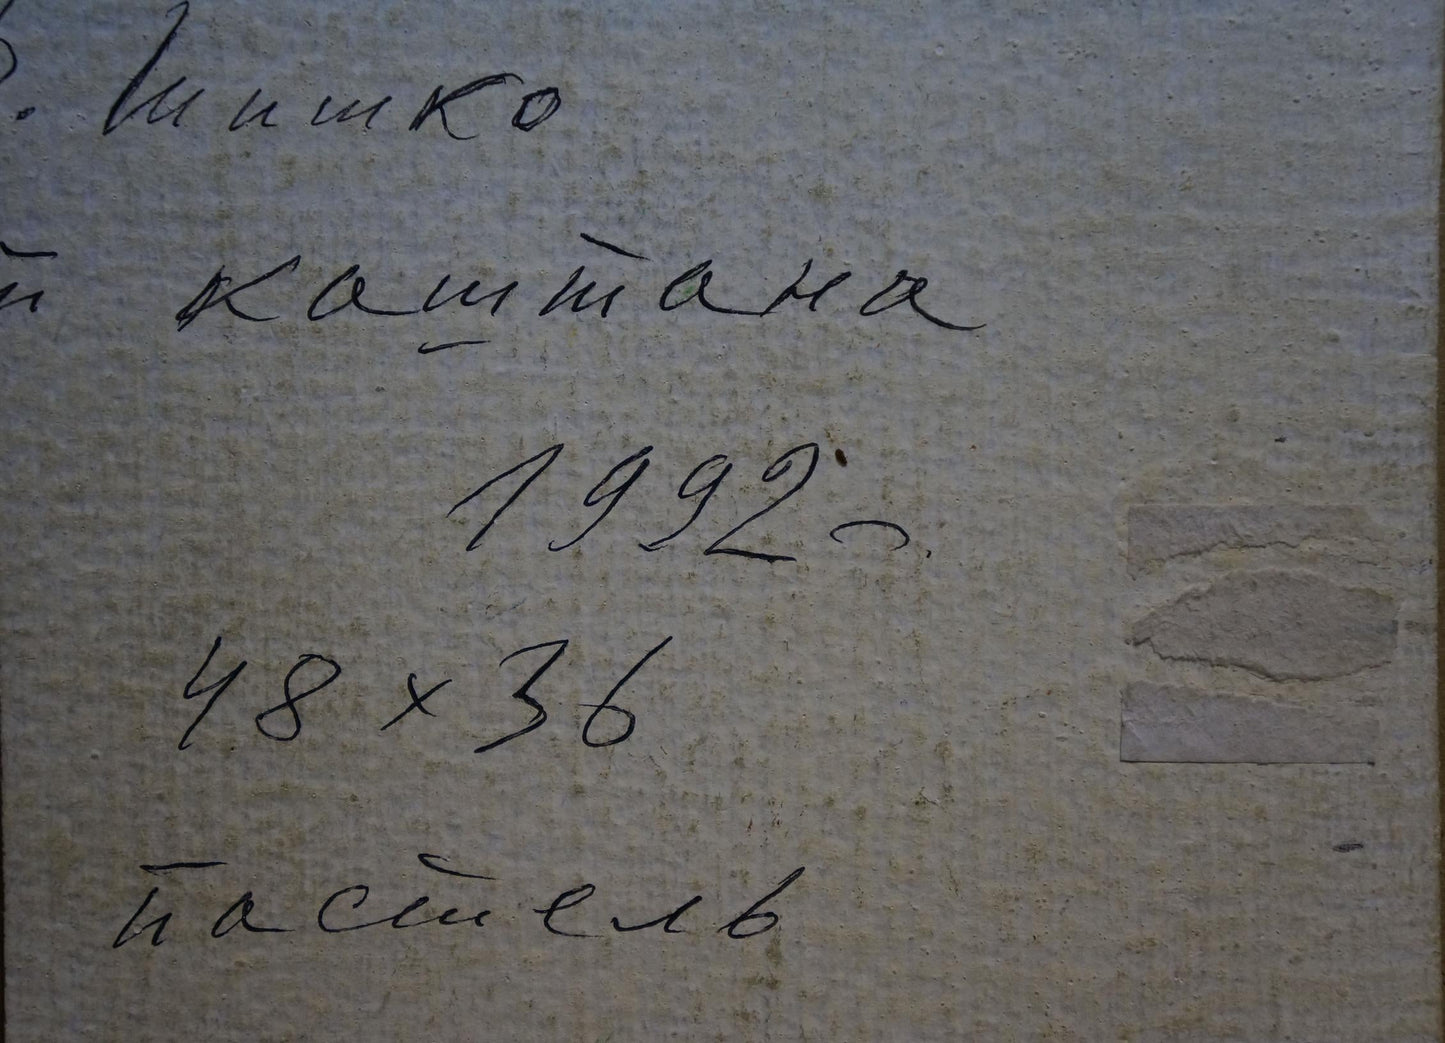 . Шишко
каштана
1992 г.
48 x 36
пастель